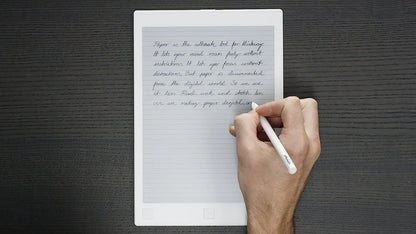 Paper is the ultimate tool for thinking
It lets your mind roam freely without
restrictions. It lets you focus without
distractions. But paper is disconnected
from the digital world. So we
it
we making paper digital